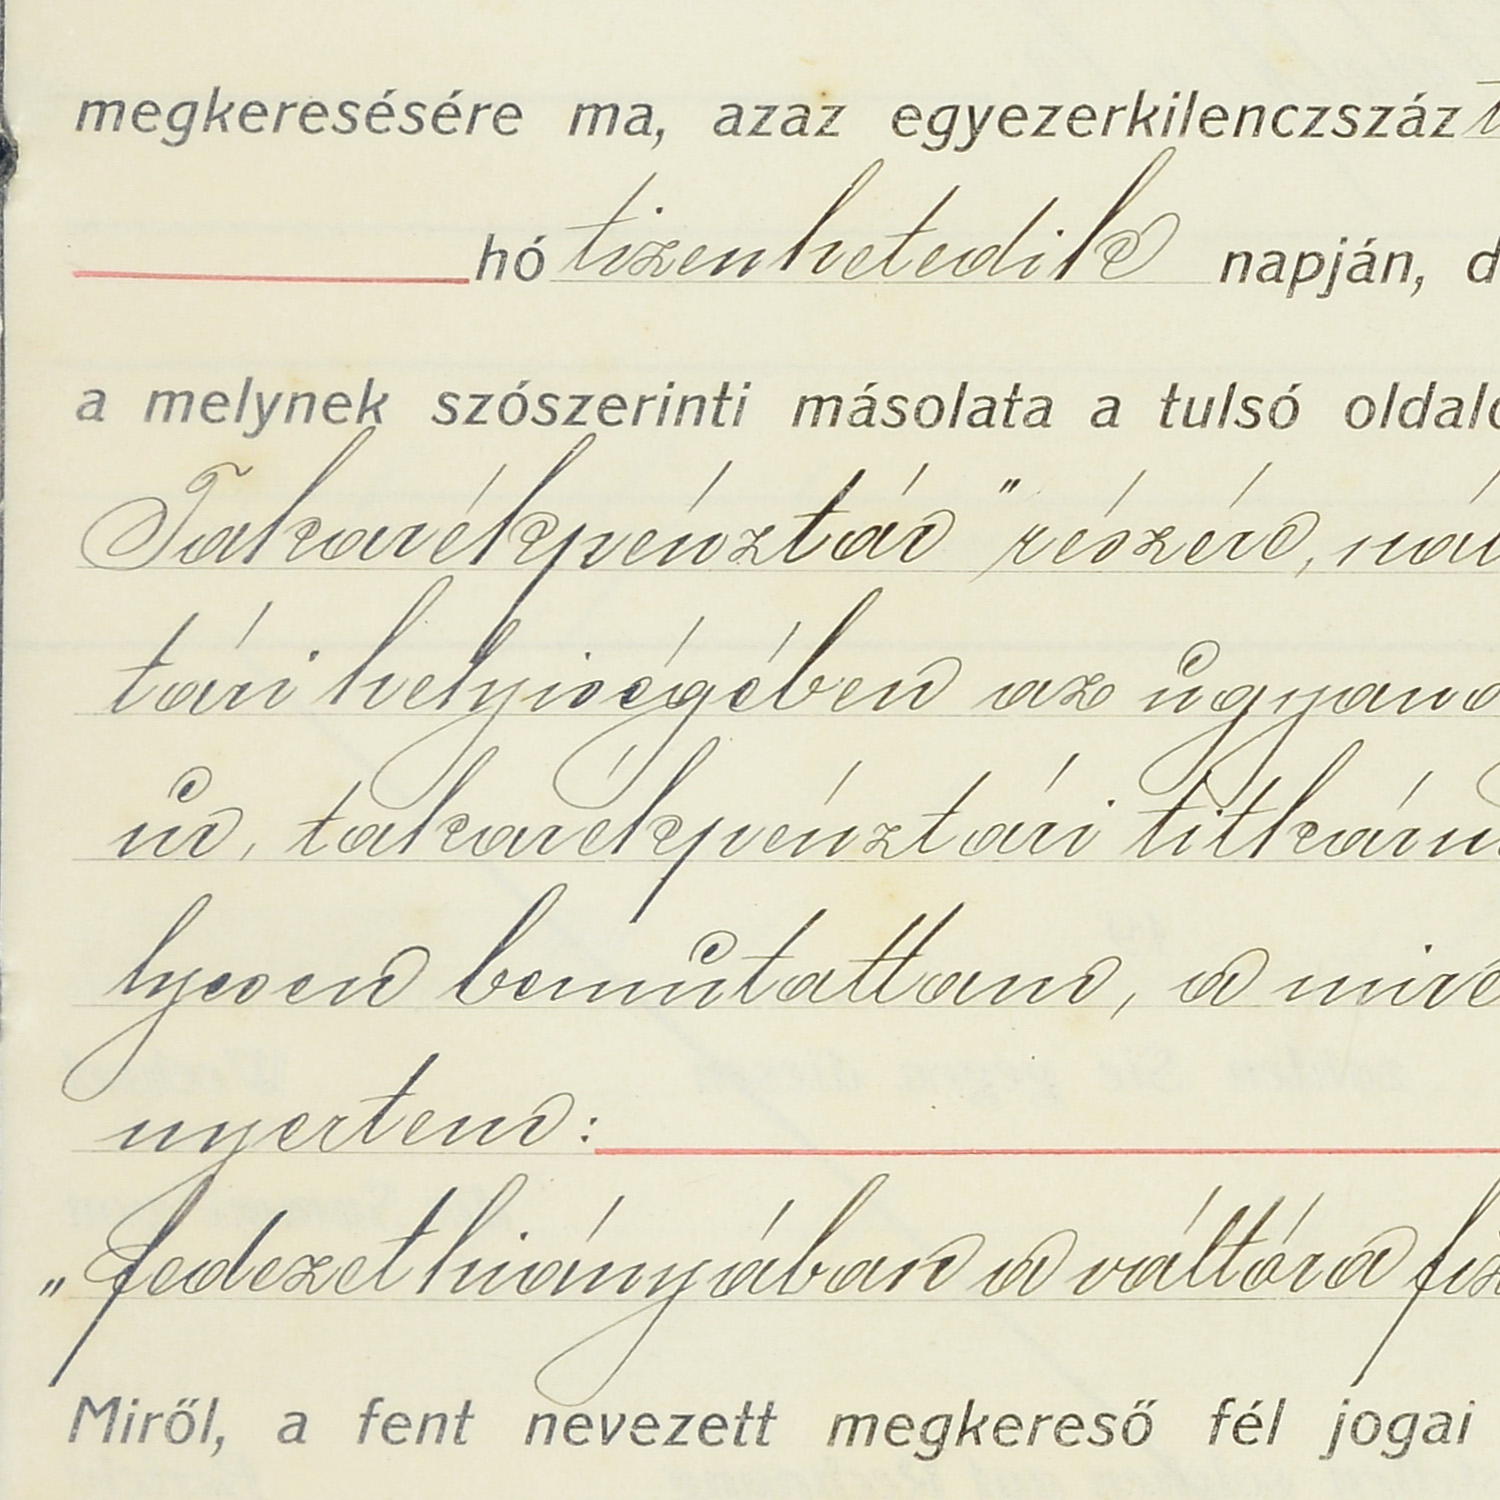 megkeresésére ma, azaz egyezerkilenczszáz
hó tizenhetedik napján, d
a melynek szószerinti másolata a tulsó oldalo
Takarékpénztár" részére, nál
tári helyiségében az ugyano
ur, takarékpénztári titkáru
lyesen bemutattam, a mire
nyertem:
„fedezet hiányában a váltóra fiz
Miről, a fent nevezett megkereső fél jogai